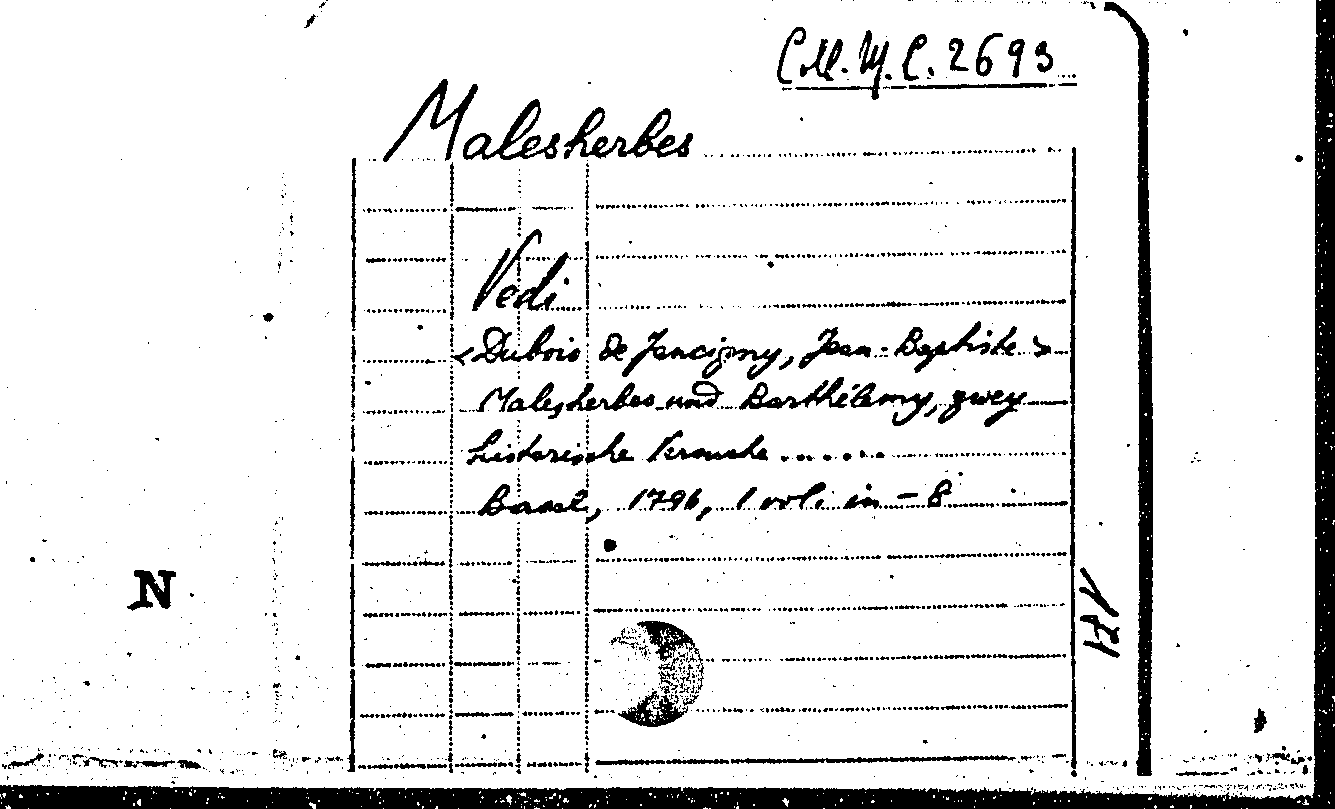 C.M.M.C. 2693
Malesherbes
Vedi
<Dubois de Jancigny, Jean-Baptiste>
Malesherbes und Barthélemy, zwey
historische Versuche ......
Basel, 1796, 1 vol. in-8
N